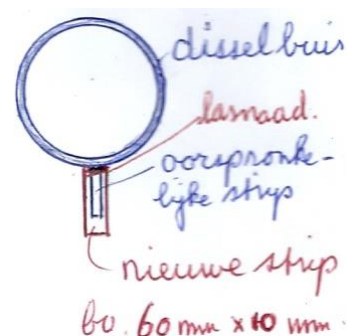 disselbuis
lasnaad.
oorspronke-
lijke strip
nieuwe strip
bv. 60 mm x 10 mm.